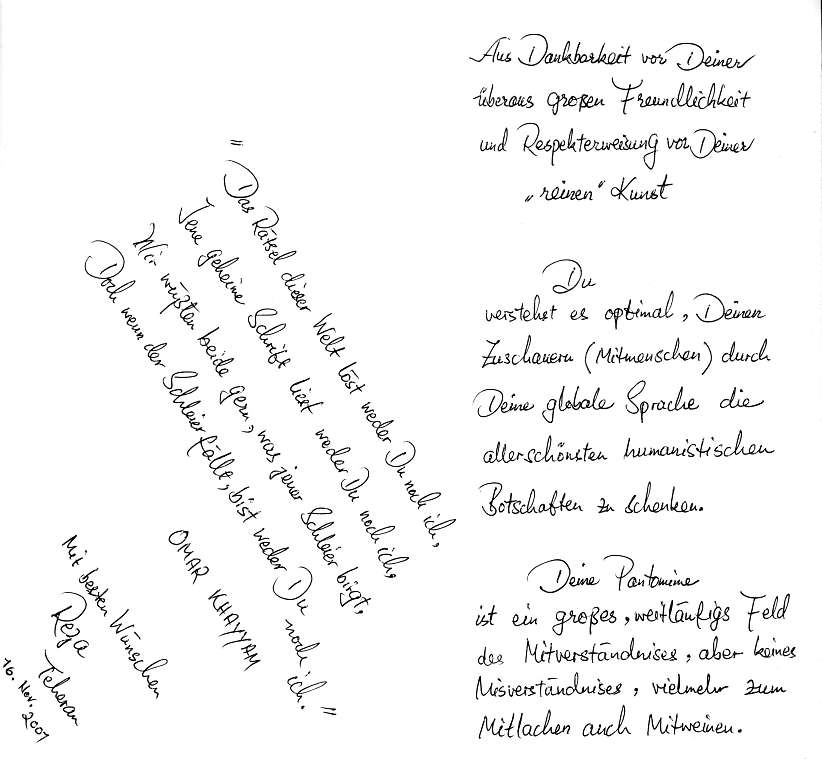 Aus Dankbarkeit vor Deiner
überaus großen Freundlichkeit
und Respekterweisung vor Deiner
„reinen“ Kunst
Du
verstehst es optimal, Deinen
Zuschauern (Mitmenschen) durch
Deine globale Sprache die
allerschönsten humanistischen
Botschaften zu schenken.
Deine Pantomime
ist ein großes, weitläufigs Feld
des Mitverständnises, aber keines
Misverständnises, vielmehr zum
Mitlachen auch Mitweinen.
"Das Rätsel dieser Welt löst weder Du noch ich,
Jene geheime Schrift liest weder Du noch ich,
Wir wüßten beide gern, was jener Schleier birgt,
Doch wenn der Schleier fällt, bist weder Du noch ich."
OMAR KHAYYAM
Mit besten Wünschen
Reza
Teheran
16. Nov. 2007